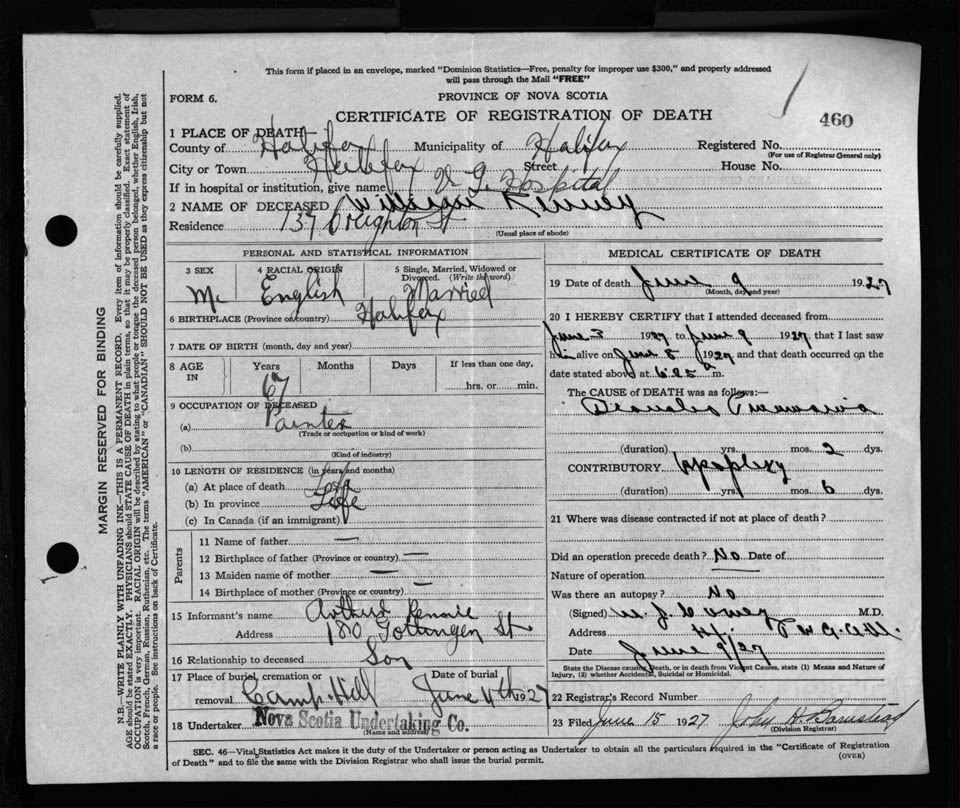 This form if placed in an envelope, marked "Dominion Statistics—Free, penalty for improper use $300," and properly addressed
will pass through the Mail "FREE"
FORM 6.
PROVINCE OF NOVA SCOTIA
CERTIFICATE OF REGISTRATION OF DEATH
460
1 PLACE OF DEATH—
County of Halifax Municipality of Halifax Registered No.
(For use of Registrar General only)
City or Town Halifax Street House No.
If in hospital or institution, give name V G. Hospital
2 NAME OF DECEASED William Kenney
Residence 137 Creighton St
(Usual place of abode)
PERSONAL AND STATISTICAL INFORMATION
3 SEX 4 RACIAL ORIGIN 5 Single, Married, Widowed or Divorced. (Write the word)
English Married
6 BIRTHPLACE (Province or country) Halifax
7 DATE OF BIRTH (month, day and year)
8 AGE IN Years Months Days If less than one day,
67 hrs. or min.
9 OCCUPATION OF DECEASED
(a) Painter
(Trade or occupation or kind of work)
(b)
(Kind of industry)
10 LENGTH OF RESIDENCE (in years and months)
(a) At place of death
(b) In province Life
(c) In Canada (if an immigrant)
Parents
11 Name of father —
12 Birthplace of father (Province or country) —
13 Maiden name of mother —
14 Birthplace of mother (Province or country) —
15 Informant's name Arthur
Address 180 Gottingen St
16 Relationship to deceased Son
17 Place of burial, cremation or removal Camp Hill Date of burial June 1927
18 Undertaker Nova Scotia Undertaking Co.
(Name and address)
MEDICAL CERTIFICATE OF DEATH
19 Date of death June 9 1927
(Month, day and year)
20 I HEREBY CERTIFY that I attended deceased from
June 3 1927 to June 9 1927 that I last saw
him alive on June 8 1927 and that death occurred on the
date stated above at 6.25 m.
The CAUSE OF DEATH was as follows:
(duration) yrs. mos. 2 dys.
CONTRIBUTORY Apoplexy
(duration) yrs. mos. 6 dys.
21 Where was disease contracted if not at place of death?
Did an operation precede death? No Date of
Nature of operation
Was there an autopsy? No
(Signed) M.D.
Address
Date June 9/27
State the Disease causing Death, or in death from Violent Causes, state (1) Means and Nature of
Injury, (2) whether Accidental, Suicidal or Homicidal.
22 Registrar's Record Number
23 Filed June 15 1927 John H. Barnstead
(Division Registrar)
SEC. 46—Vital Statistics Act makes it the duty of the Undertaker or person acting as Undertaker to obtain all the particulars required in the "Certificate of Registration
of Death" and to file the same with the Division Registrar who shall issue the burial permit.
(OVER)
MARGIN RESERVED FOR BINDING
N.B.—WRITE PLAINLY WITH UNFADING INK—THIS IS A PERMANENT RECORD. Every item of information should be carefully supplied.
AGE should be stated EXACTLY. PHYSICIANS should STATE CAUSE OF DEATH in plain terms, so that it may be properly classified. Exact statement of
OCCUPATION is very important. RACIAL ORIGIN will be described by stating to what people or tongue the deceased person belonged, whether English, Irish,
Scotch, French, German, Russian, Ruthenian, etc. The terms "AMERICAN" or "CANADIAN" SHOULD NOT BE USED as they express citizenship but not
a race or people. See instructions on back of Certificate.